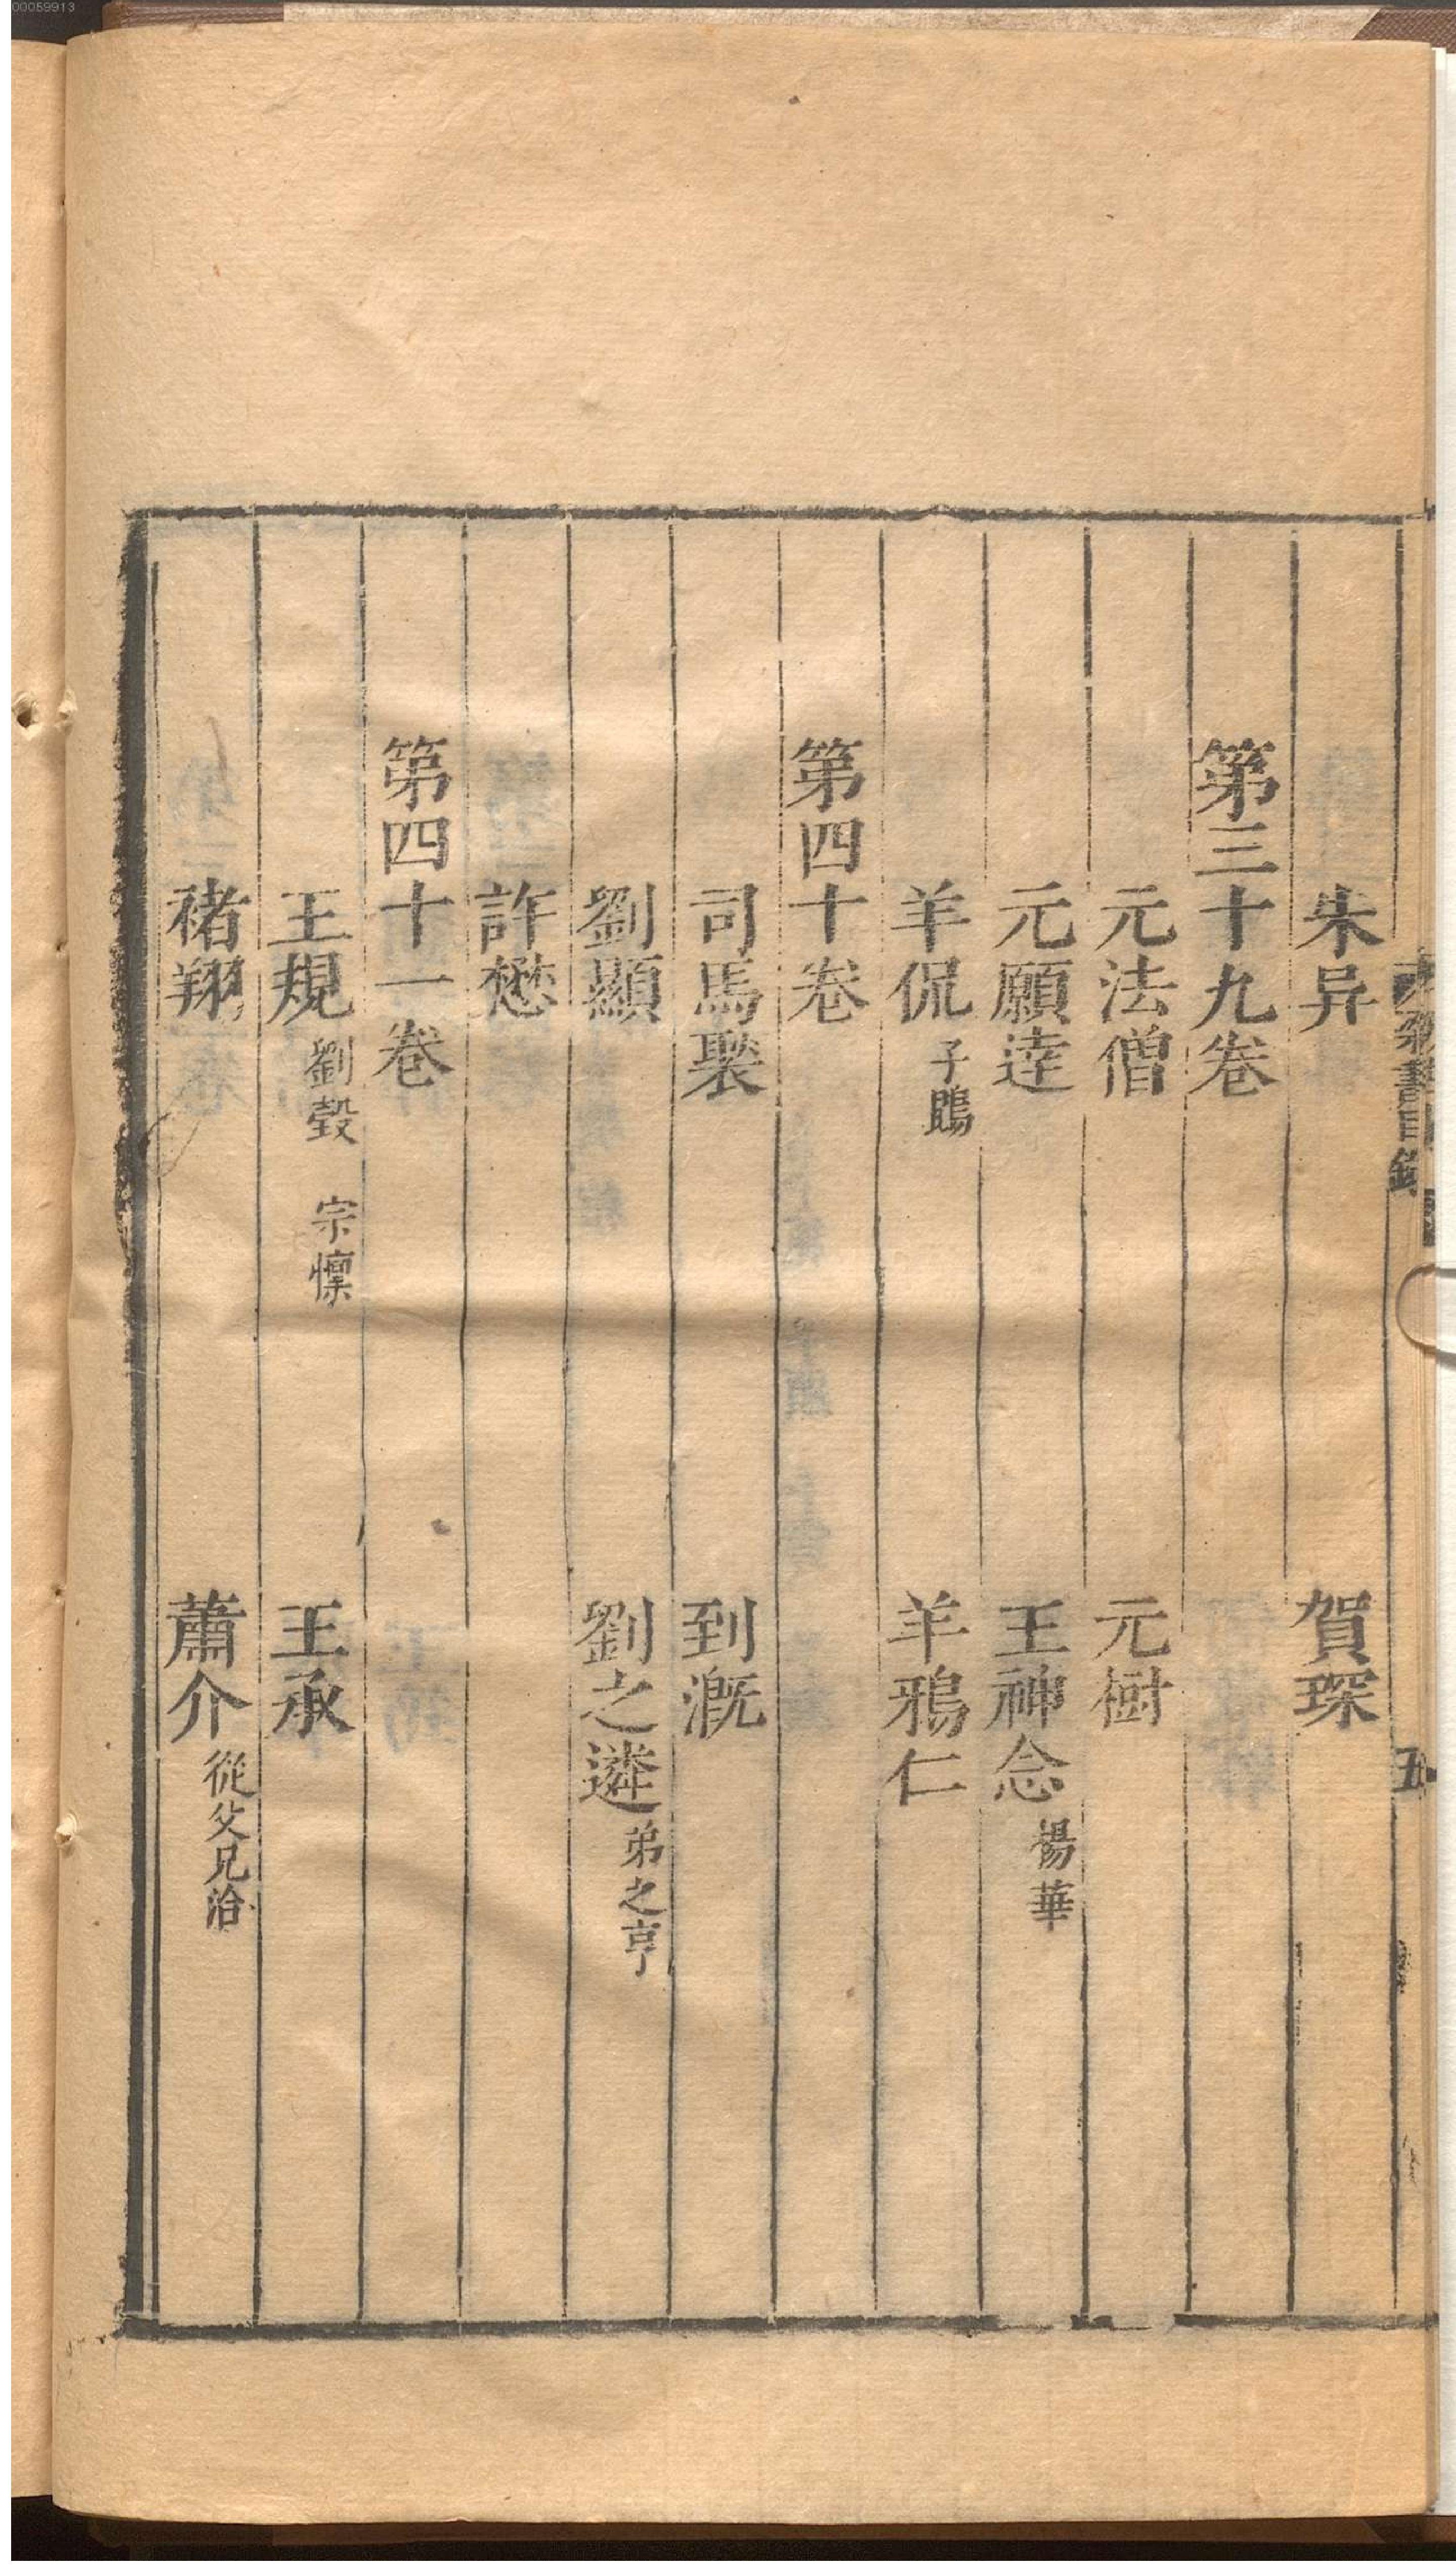 00059913
梁書目錄
五
朱异　賀琛
第三十九卷
元法僧　元樹
元願達　王神念 楊華
羊侃 子鵾　羊鴉仁
第四十卷
司馬褧　到溉
劉顯　劉之遴 弟之亨
許懋
第四十一卷
王規 劉瑴 宗懍　王承
褚翔　蕭介 從父兄洽